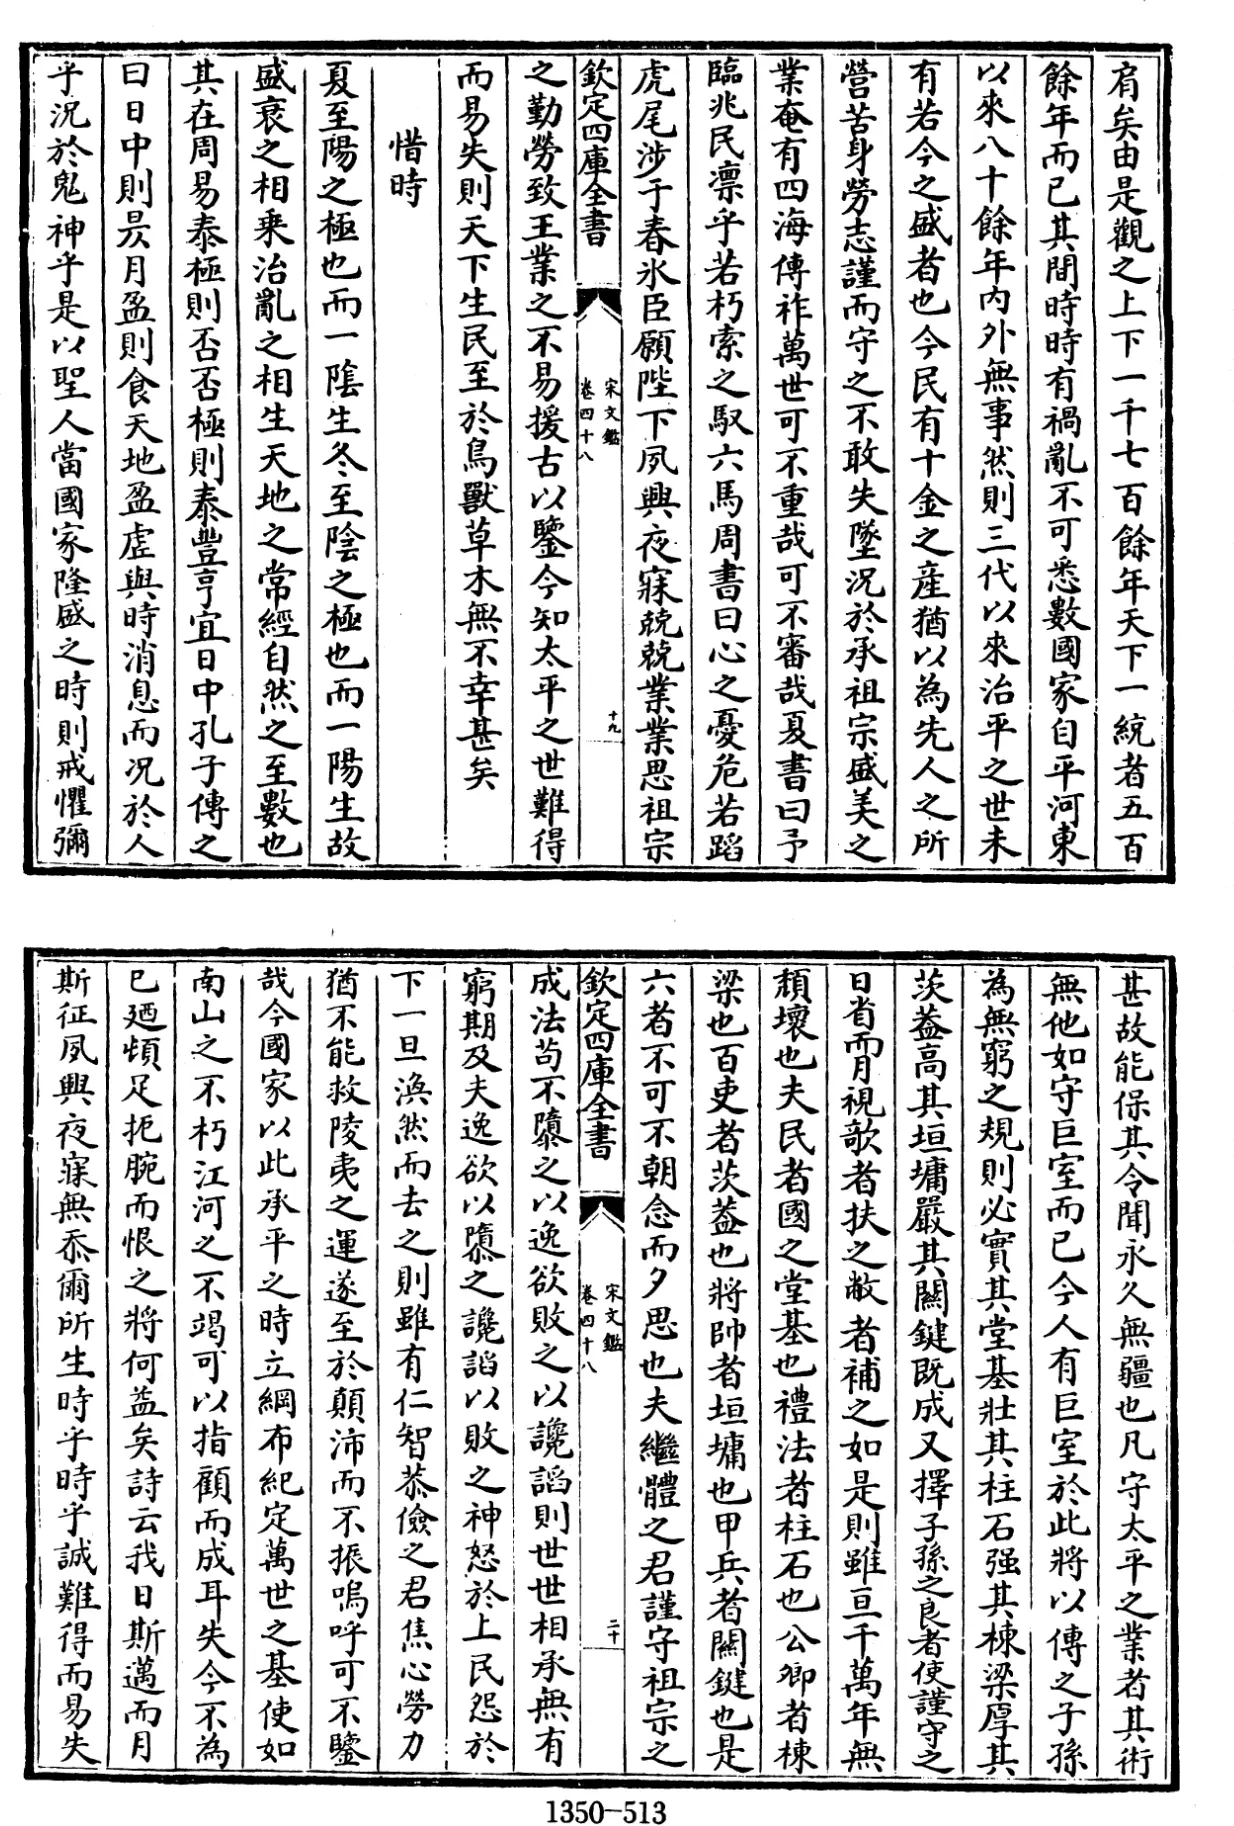 肩矣由是觀之上下一千七百餘年天下一統者五百
餘年而已其間時時有禍亂不可悉數國家自平河東
以來八十餘年內外無事然則三代以來治平之世未
有若今之盛者也今民有十金之産猶以為先人之所
營苦身勞志謹而守之不敢失墜況於承祖宗盛美之
業奄有四海傳祚萬世可不重哉可不審哉夏書曰予
臨兆民凛乎若朽索之馭六馬周書曰心之憂危若蹈
虎尾涉于春氷臣願陛下夙興夜寐兢兢業業思祖宗
欽定四庫全書
宋文鑑
卷四十八
十九
之勤勞致王業之不易援古以鑒今知太平之世難得
而易失則天下生民至於鳥獸草木無不幸甚矣
惜時
夏至陽之極也而一隂生冬至陰之極也而一陽生故
盛衰之相乗治亂之相生天地之常經自然之至數也
其在周易泰極則否否極則泰豐亨宜日中孔子傳之
曰日中則昃月盈則食天地盈虛與時消息而況於人
乎況於鬼神乎是以聖人當國家隆盛之時則戒懼彌
甚故能保其令聞永久無疆也凡守太平之業者其術
無他如守巨室而已今人有巨室於此將以傳之子孫
為無窮之規則必實其堂基壯其柱石强其棟梁厚其
茨葢高其垣墉嚴其關鍵既成又擇子孫之良者使謹守之
日省而月視欹者扶之敝者補之如是則雖亘千萬年無
頽壞也夫民者國之堂基也禮法者柱石也公卿者棟
梁也百吏者茨葢也將帥者垣墉也甲兵者關鍵也是
六者不可不朝念而夕思也夫繼體之君謹守祖宗之
欽定四庫全書
宋文鑑
卷四十八
二十
成法苟不隳之以逸欲敗之以讒謟則世世相承無有
窮期及夫逸欲以隳之讒謟以敗之神怒於上民怨於
下一旦渙然而去之則雖有仁智恭儉之君焦心勞力
猶不能救陵夷之運遂至於顛沛而不振嗚呼可不鑒
哉今國家以此承平之時立綱布紀定萬世之基使如
南山之不朽江河之不竭可以指顧而成耳失今不為
已廼頓足扼腕而恨之將何益矣詩云我日斯邁而月
斯征夙興夜寐無忝爾所生時乎時乎誠難得而易失
1350-513